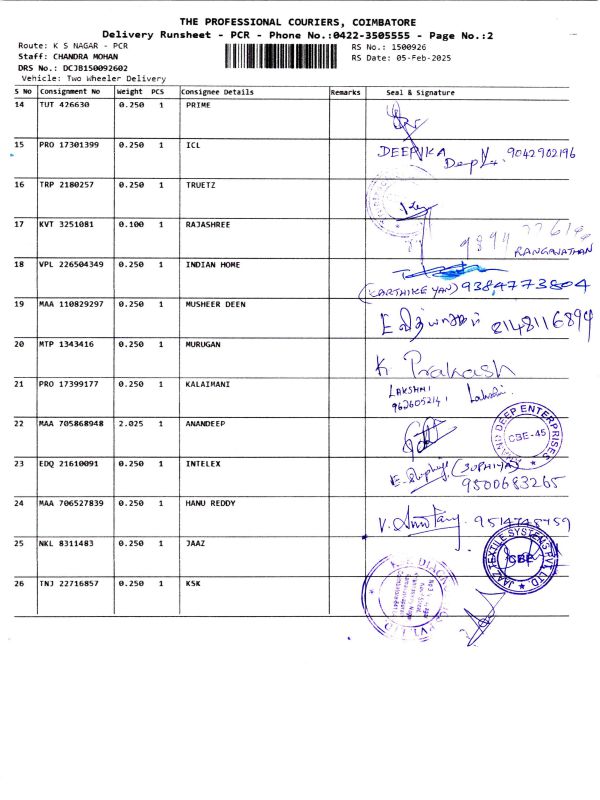 THE PROFESSIONAL COURIERS, COIMBATORE
Delivery Runsheet - PCR - Phone No.:0422-3505555 - Page No.:2
Route: K S NAGAR - PCR RS No.: 1500926
Staff: CHANDRA MOHAN RS Date: 05-Feb-2025
DRS No.: DCJB150092602
Vehicle: Two Wheeler Delivery
S No Consignment No Weight PCS Consignee Details Remarks Seal & Signature
14 TUT 426630 0.250 1 PRIME
15 PRO 17301399 0.250 1 ICL DEEPIKA 9042902196
16 TRP 2180257 0.250 1 TRUETZ
17 KVT 3251081 0.100 1 RAJASHREE
RANGANATHAN
18 VPL 226504349 0.250 1 INDIAN HOME
(KARTHIKEYAN) 9384773804
19 MAA 110829297 0.250 1 MUSHEER DEEN 8148116894
20 MTP 1343416 0.250 1 MURUGAN K Prakash
21 PRO 17399177 0.250 1 KALAIMANI LAKSHMI
22 MAA 705868948 2.025 1 ANANDEEP
ANAND DEEP ENTERPRISES
CBE-45
23 EDQ 21610091 0.250 1 INTELEX (SUPHIYA)
9500683265
24 MAA 706527839 0.250 1 HANU REDDY
25 NKL 8311483 0.250 1 JAAZ
JAAZ TEXTILE SYSTEMS PVT LTD
CBE
26 TNJ 22716857 0.250 1 KSK